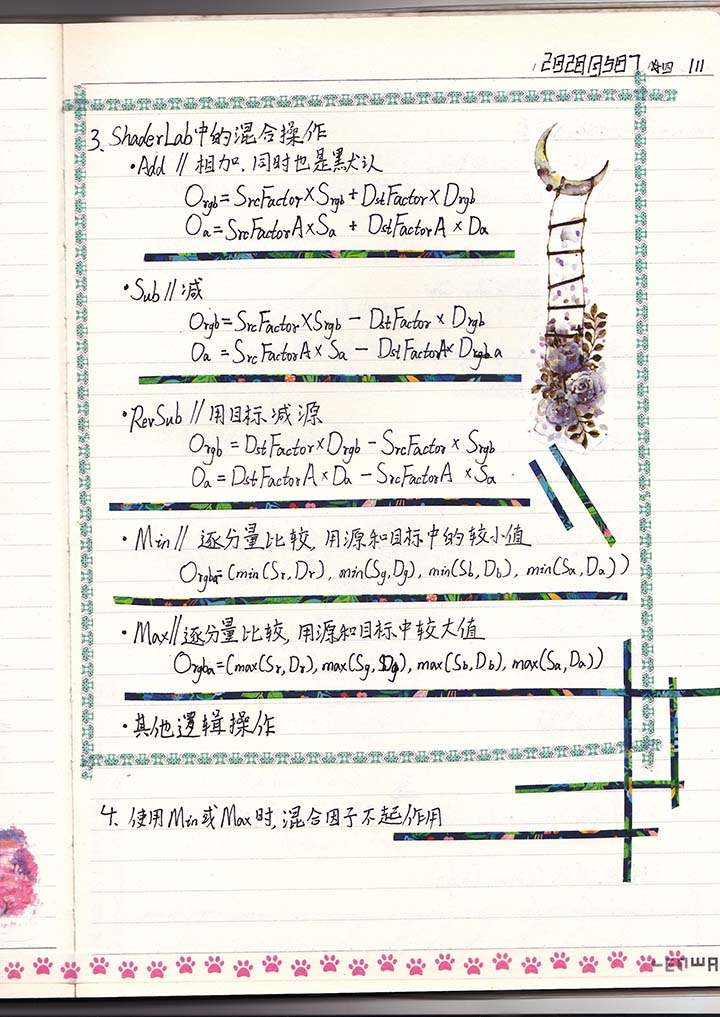 20200507 周四 111
3、ShaderLab中的混合操作
·Add // 相加，同时也是默认
Orgb=SrcFactor×Srgb+DstFactor×Drgb
Oa=SrcFactorA×Sa + DstFactorA × Da
·Sub // 减
Orgb=SrcFactor×Srgb - DstFactor × Drgb
Oa =SrcFactorA×Sa - DstFactorA×Drgba
·RevSub // 用目标减源
Orgb = DstFactor×Drgb - SrcFactor × Srgb
Oa = DstFactorA × Da - SrcFactorA × Sa
·Min // 逐分量比较，用源和目标中的较小值
Orgba=(min(Sr,Dr), min(Sg,Dg), min(Sb,Db), min(Sa,Da))
·Max // 逐分量比较，用源和目标中较大值
Orgba=(max(Sr,Dr), max(Sg,Dg), max(Sb,Db), max(Sa,Da))
·其他逻辑操作
4、使用Min或Max时，混合因子不起作用